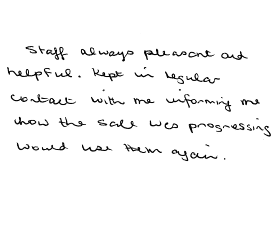 Staff always pleasant and
helpful. Kept in regular
contact with me informing me
how the sale was progressing
would use them again.